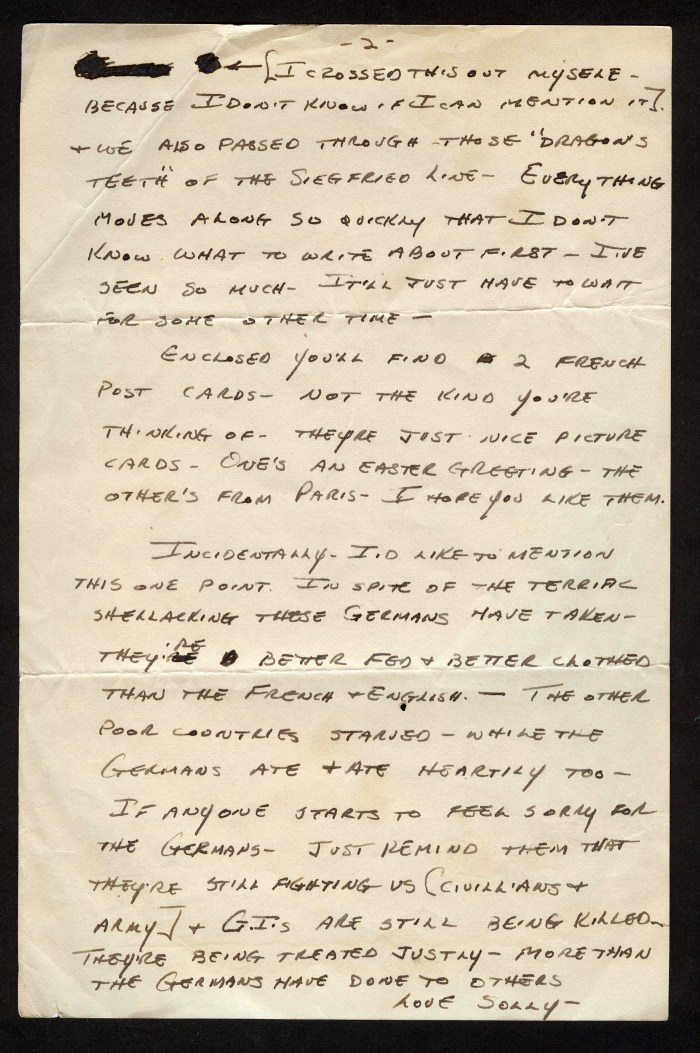 -2-
[I CROSSED THIS OUT MYSELF-
BECAUSE I DON'T KNOW IF I CAN MENTION IT].
+ WE ALSO PASSED THROUGH THOSE "DRAGON'S
TEETH" OF THE SIEGFRIED LINE- EVERYTHING
MOVES ALONG SO QUICKLY THAT I DON'T
KNOW WHAT TO WRITE ABOUT FIRST- I'VE
SEEN SO MUCH- IT'LL JUST HAVE TO WAIT
FOR SOME OTHER TIME-
ENCLOSED YOU'LL FIND 2 FRENCH
POST CARDS- NOT THE KIND YOU'RE
THINKING OF- THEY'RE JUST NICE PICTURE
CARDS- ONE'S AN EASTER GREETING- THE
OTHER'S FROM PARIS- I HOPE YOU LIKE THEM.
INCIDENTALLY- I'D LIKE TO MENTION
THIS ONE POINT. IN SPITE OF THE TERRIFIC
SHELLACKING THESE GERMANS HAVE TAKEN-
THEY'RE BETTER FED + BETTER CLOTHED
THAN THE FRENCH + ENGLISH.- THE OTHER
POOR COUNTRIES STARVED- WHILE THE
GERMANS ATE + ATE HEARTILY TOO-
IF ANYONE STARTS TO FEEL SORRY FOR
THE GERMANS- JUST REMIND THEM THAT
THEY'RE STILL FIGHTING US (CIVILLIANS +
ARMY] + G.I.'s ARE STILL BEING KILLED-
THEY'RE BEING TREATED JUSTLY- MORE THAN
THE GERMANS HAVE DONE TO OTHERS
LOVE SOLLY-